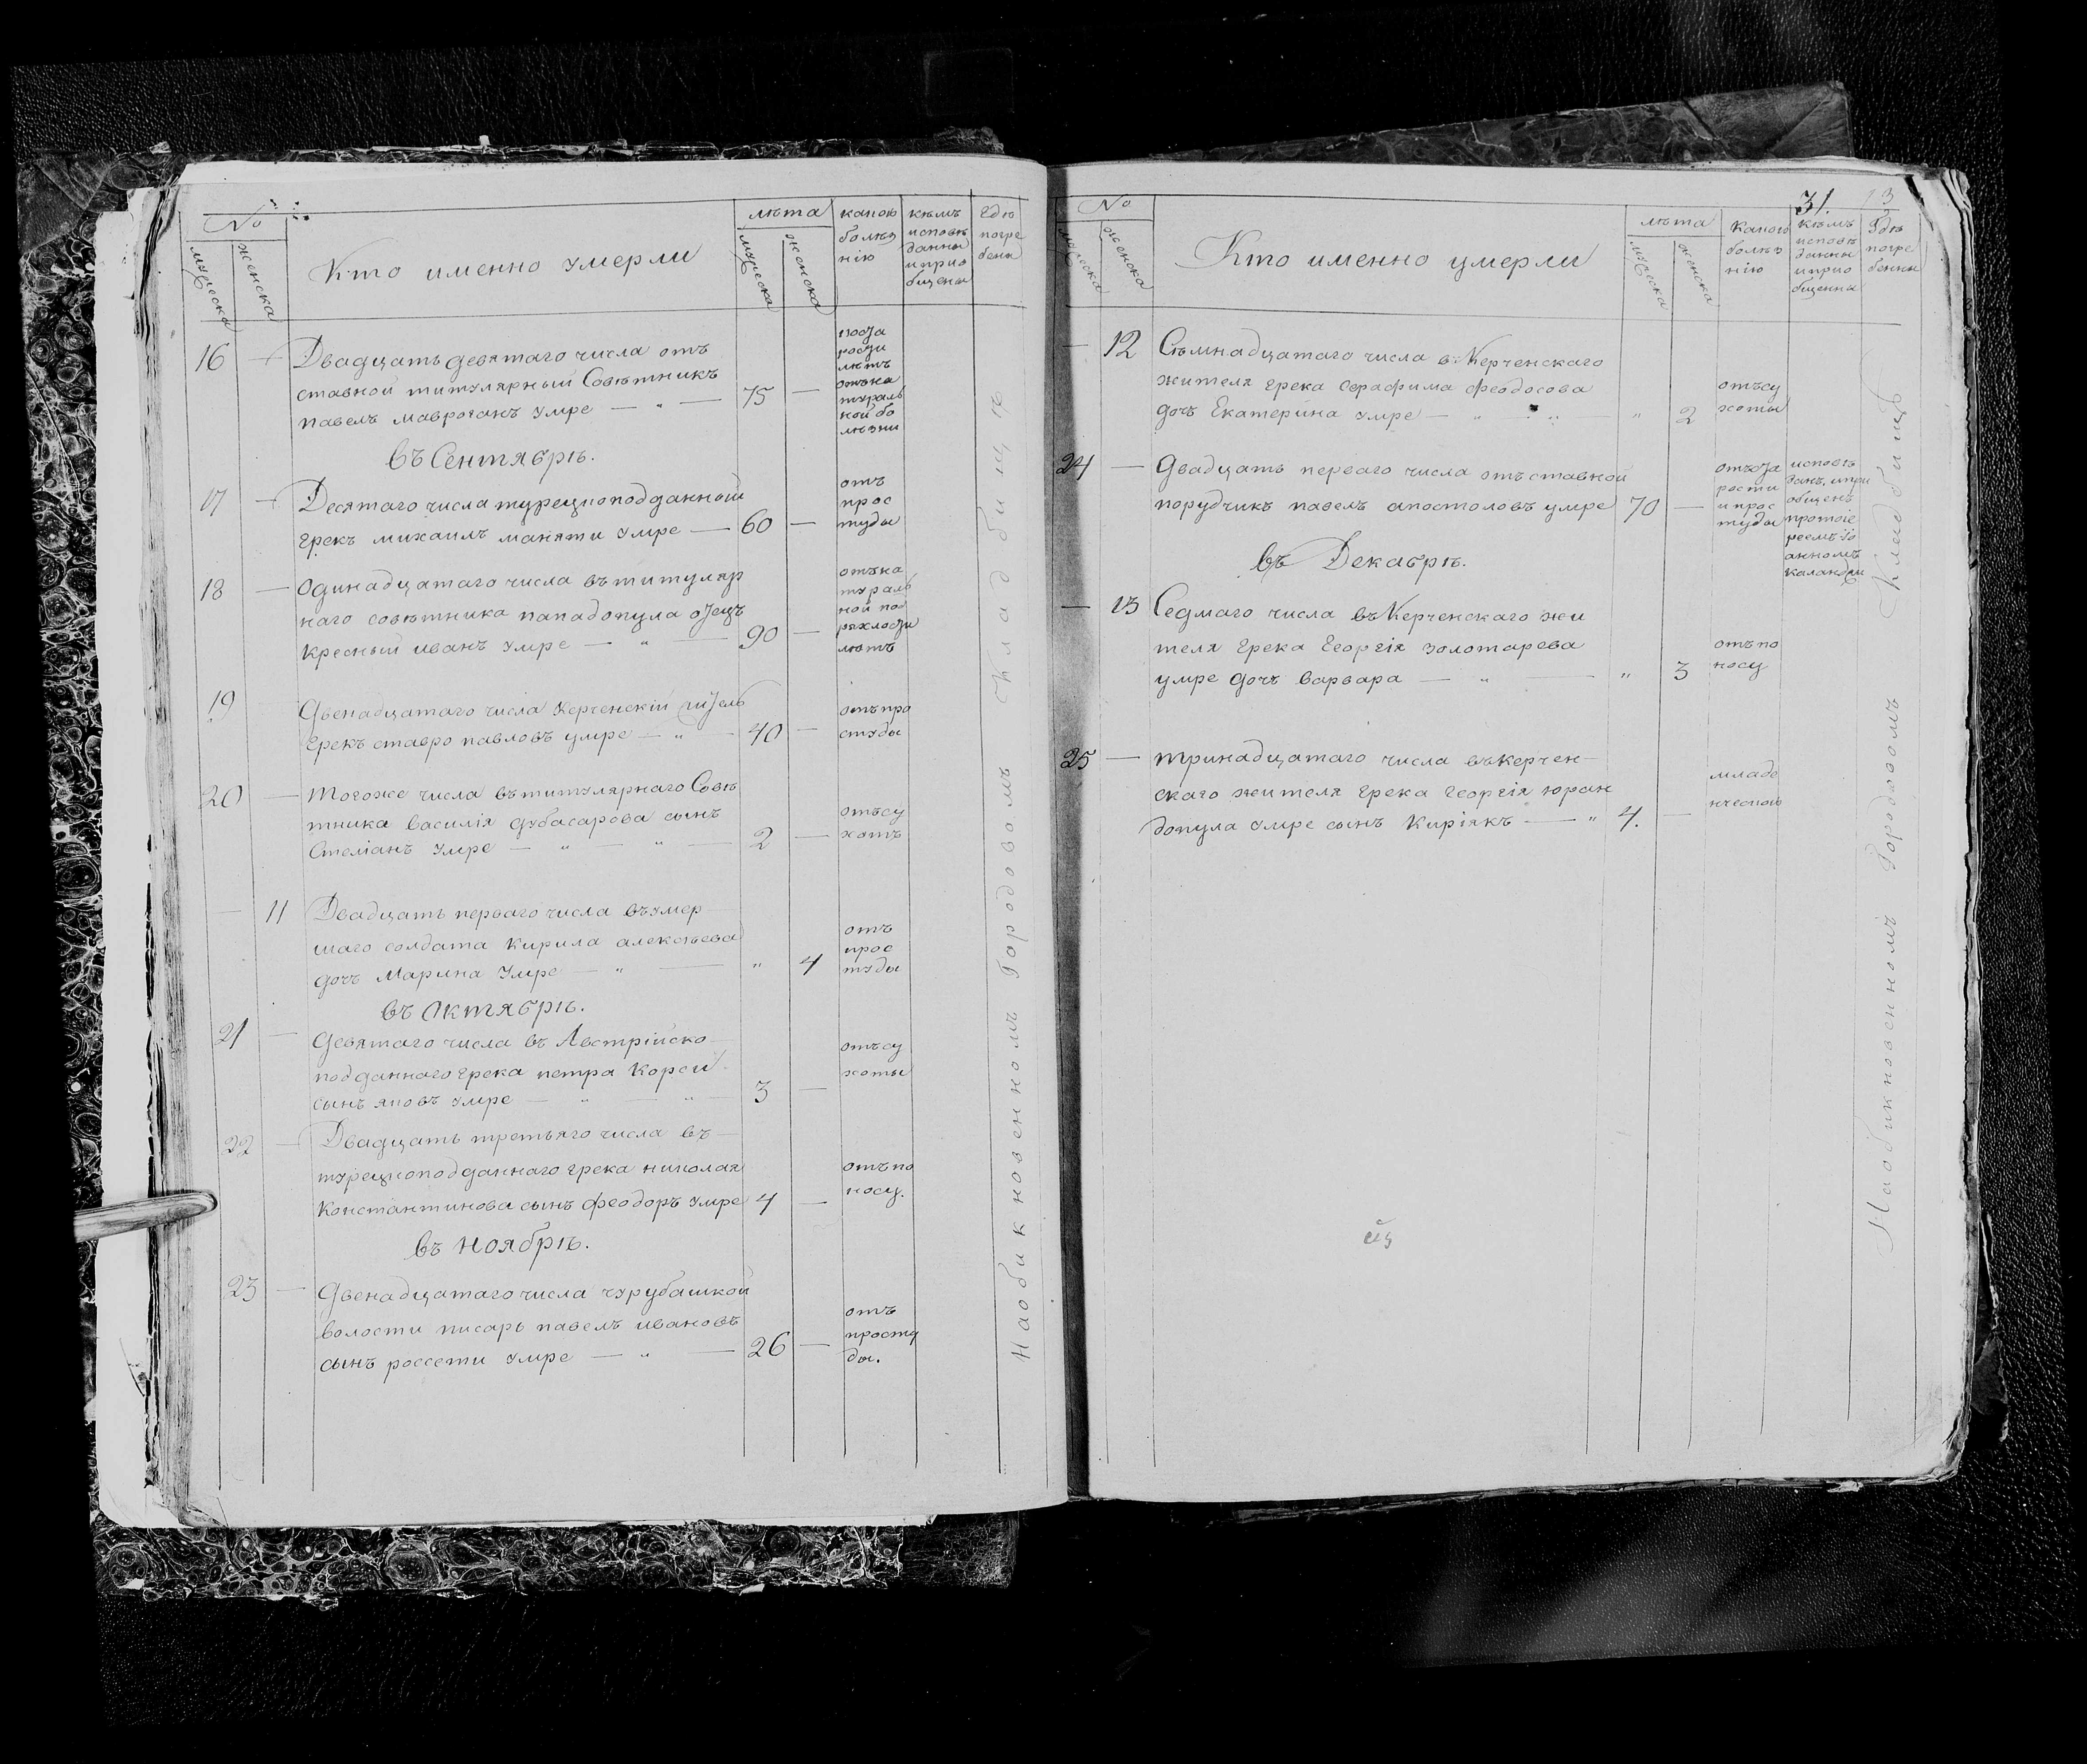 №
мужеска
женска
Кто именно умерли
лѣта
мужеска
женска
какою
болѣз
нію
кѣмъ
исповѣ
данны
и прио
бщены
Гдѣ
погре
бены
16 — Двадцать девятаго числа отъ
ставной титулярный Совѣтникъ
павелъ маврогань умре — " — 75 —
лѣтъ
отъ на
тураль
ной бо
лѣзни
въ Сентябрѣ.
17 — Десятаго числа турецкоподданный
грекъ михаилъ маняти умре — 60 —
отъ
прос
туды
18 — Одинадцатаго числа въ титуляр
наго совѣтника пападопула отецъ
кресный иванъ умре — " — 90 —
отъ на
тураль
ной
лѣтъ
19 Двенадцатаго числа Керченскій житель
грекъ ставро павловъ умре — " — 40 —
отъ про
студы
20 — Тогоже числа въ титулярнаго Совѣ
тника василія дубасарова сынъ
Стеліанъ умре — " — " — 2 —
отъ су
хотъ
— 11 Двадцать перваго числа въ умер
шаго солдата кирила алексѣева
дочъ Марина умре — " — " 4
отъ
прос
туды
въ Октябрѣ.
21 — Девятаго числа въ Австрійско
подданнаго грека петра Корси
сынъ яковъ умре — " — " — 3 —
отъ су
хоты
22 — Двадцать третьяго числа въ
турецкоподданнаго грека николая
Константинова сынъ феодоръ умре 4 —
отъ по
носу.
въ Ноябрѣ.
23 — Двенадцатаго числа чурубашкой
волости писарь павелъ ивановъ
сынъ россети умре — " — 26 —
отъ
просту
ды.
На обикновенномъ Городовомъ Кладбищѣ
31. 13
№
мужеска
женска
Кто именно умерли
лѣта
мужеска
женска
какою
болѣз
нію
кѣмъ
исповѣ
данны
и прио
бщенны
Гдѣ
погре
бенны
— 12 Съмнадцатаго числа в Керченскаго
жителя грека Серафима Феодосова
дочъ Екатерина умре — " " " 2
отъ су
хоты
24 — Двадцать перваго числа отъставной
порудчикъ павелъ апостоловъ умре 70 —
рости
и прос
туды
исповѣ
данъ, и при
общенъ
протоіе
реемъ Іо
анномъ
каландли
въ Декабрѣ.
— 13 Седмаго числа въ Керченскаго жи
теля грека Георгія золотарева
умре дочъ варвара — " — " 3
отъ по
носу
25 — Тринадцатаго числа въ керчен—
скаго жителя грека георгія юран
допула умре сынъ Киріякъ — " 4. —
младе
нческою
На обикновенномъ Городовомъ Кладбищѣ